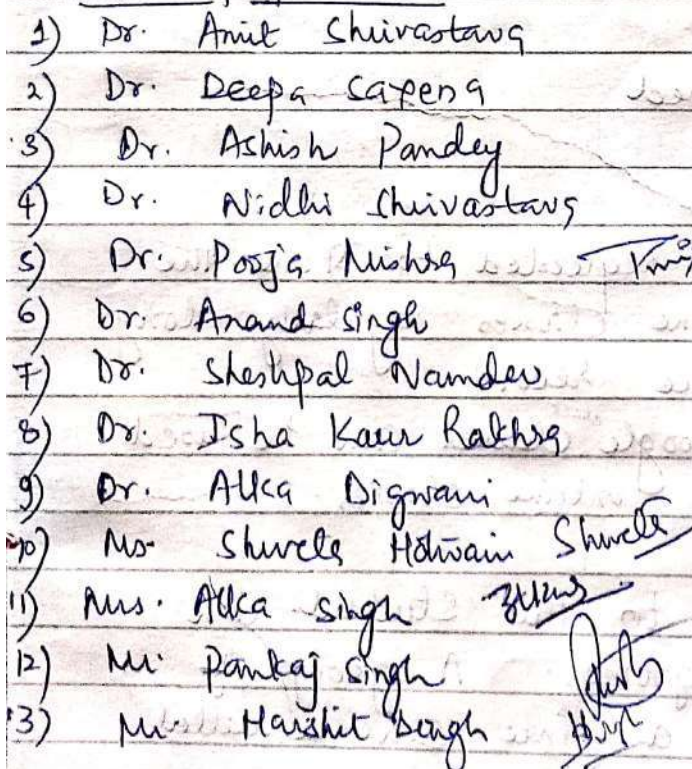 1) Dr. Amit Shrivastava
2) Dr. Deepa Saxena
3) Dr. Ashish Pandey
4) Dr. Nidhi Shrivastava
5) Dr. Pooja Mishra
6) Dr. Anand Singh
7) Dr. Sheshpal Namdev
8) Dr. Isha Kaur Rakhra
9) Dr. Alka Digwani
10) Ms. Shweta Shweta
11) Mrs. Alka Singh
12) Mr. Pankaj Singh
13) Mr. Harshit Singh